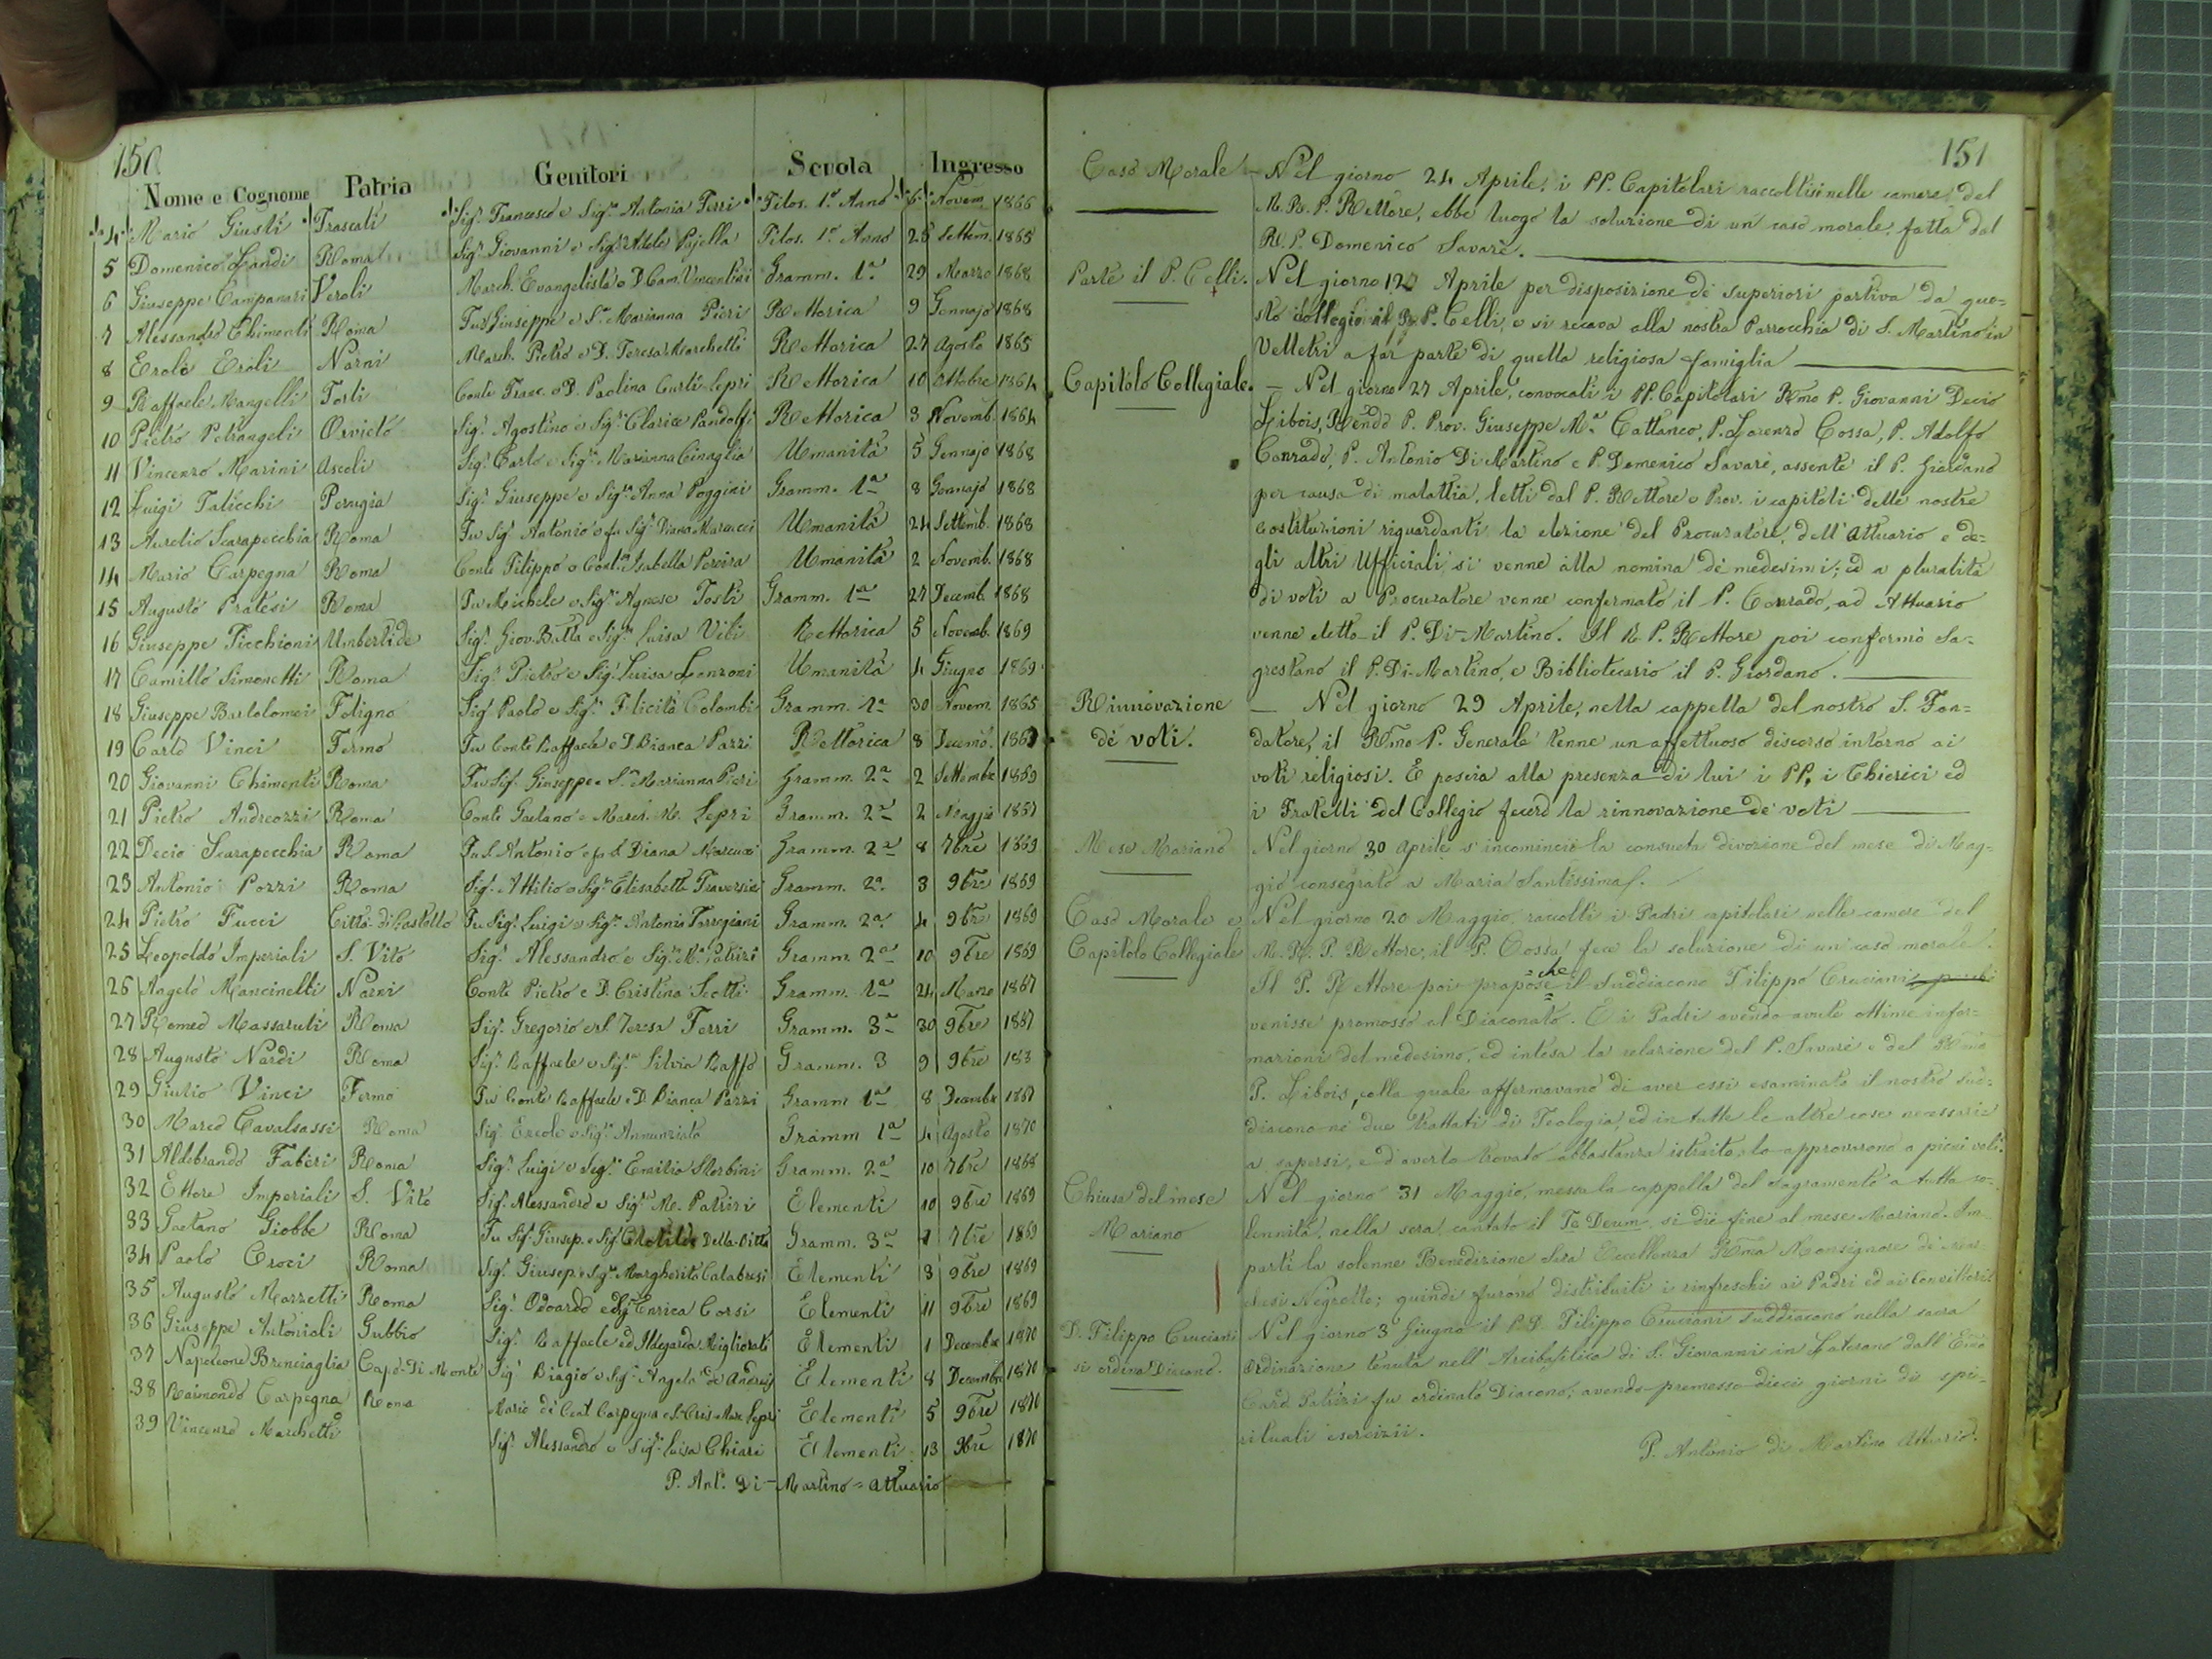 150
Nome e Cognome Patria Genitori Scuola Ingresso
4 Mario Giusti Frascati Sigr. Francesco e Sigra Antonia Ferri Filos. 1º Anno 6 Novem. 1866
5 Domenico Landi Roma Sigr. Giovanni e Sigra Adele Pajella Filos. 1º Anno 28 Settem. 1865
6 Giuseppe Campanari Veroli March. Evangelista e D. Cam. Vincentini Gramm. 1ª 29 Marzo 1868
7 Alessandro Chimenti Roma Fu Giuseppe e Sª Marianna Pieri Rettorica 9 Gennajo 1868
8 Erolo Eroli Narni March. Pietro e D. Teresa Marchetti Rettorica 27 Agosto 1865
9 Raffaele Mangelli Forli Conte Franc. e D. Paolina Curti-Lepri Rettorica 10 Ottobre 1864
10 Pietro Petrangeli Orvieto Sigr. Agostino e Sigra Clarice Pandolfi Rettorica 3 Novemb. 1864
11 Vincenzo Marini Ascoli Sigr. Carlo e Sigra Marianna Cinaglia Umanità 5 Gennajo 1868
12 Luigi Talicchi Perugia Sigr. Giuseppe e Sigra Anna Poggini Gramm. 1ª 8 Gennajo 1868
13 Aurelio Scarapecchia Roma Fu Sigr Antonio e fu Sigra Diana Marcucci Umanità 24 Settemb. 1868
14 Mario Carpegna Roma Conte Filippo e Contª Isabella Pereira Umanità 2 Novemb. 1868
15 Augusto Pratesi Roma Fu Michele e Sigra Agnese Tosti Gramm. 1ª 27 Decemb. 1868
16 Giuseppe Ticchioni Umbertide Sigr. Giov. B.tta e Sigra Luisa Vibi Rettorica 5 Novemb. 1869
17 Camillo Simonetti Roma Sigr. Pietro e Sigra Luisa Lanzoni Umanità 4 Giugno 1869
18 Giuseppe Bartolomei Foligno Sigr Paolo e Sigra Felicita Colombi Gramm. 1ª 30 Novem. 1865
19 Carlo Vinci Fermo Fu Conte Raffaele e D. Bianca Pazzi Rettorica 8 Decemb. 186
20 Giovanni Chimenti Roma Fu Sigr Giuseppe e Sª Marianna Pieri Gramm. 2ª 2 Settembe 1869
21 Pietro Andreozzi Roma Conte Gaetano e March. M. Lepri Gramm. 2ª 2 Maggio 1867
22 Decio Scarapecchia Roma Fu S. Antonio e fu S. Diana Marcucci Gramm. 2ª 8 7bre 1869
23 Antonio Pozzi Roma Sigr. Attilio e Sigra Elisabetta Traversini Gramm. 2ª 3 9bre 1869
24 Pietro Fucci Città di Castello Fu Sigr Luigi e Sigra Antonia Torregiani Gramm. 2ª 4 9bre 1869
25 Leopoldo Imperiali S. Vito Sigr. Alessandro e Sigra M. Patrizi Gramm. 2ª 10 9bre 1869
26 Angelo Mancinelli Narni Conte Pietro e D. Cristina Scotti Gramm. 1ª 24 Marzo 1867
27 Romeo Massaruti Roma Sigr. Gregorio e S. Teresa Ferri Gramm. 3ª 30 9bre 1867
28 Augusto Nardi Roma Sigr. Raffaele e Sigra Silvia Raffo Gramm. 3 9 9bre 183
29 Giulio Vinci Fermo Fu Conte Raffaele e D. Bianca Pazzi Gramm 1ª 8 Decembe 1867
30 Marco Cavalsassi Roma Sigr Ercole e Sigra Annunziata Gramm 1ª 4 Agosto 1870
31 Aldebrando Faberi Roma Sigr. Luigi e Sigra Emilia Sterbini Gramm. 2ª 10 7bre 1868
32 Ettore Imperiali S. Vito Sigr. Alessandro e Sigra M. Patrizi Elementi 10 9bre 1869
33 Gaetano Giobbe Roma Fu Sigr Giusep. e Sigra Clotilde Della-Città Gramm. 3ª 7 7bre 1869
34 Paolo Croci Roma Sigr. Giusep. e Sigra Margherita Calabresi Elementi 3 9bre 1869
35 Augusto Marzetti Roma Sigr. Odoardo ed Sigra Enrica Corsi Elementi 11 9bre 1869
36 Giuseppe Antonioli Gubbio Sigr. Raffaele ed Ildegarda Migliorati Elementi 1 Decembe 1870
37 Napoleone Brenciaglia Capo-Di Monte Sigr. Biagio e Sigra Angela de Andreis Elementi 8 Decembre 1870
38 Raimondo Carpegna Roma Mario di Cont Carpegna e S. Cris. Marc. Lepri Elementi 5 9bre 1870
39 Vincenzo Marchetti Sigr. Alessandro e Sigra Luisa Chiari Elementi 13 9bre 1870
P. Ant. Di-Martino = Attuario
151
Caso Morale – Nel giorno 24 Aprile, i PP. Capitolari raccoltisi nelle camere del
M. R. P. Rettore, ebbe luogo la soluzione di un caso morale, fatta dal
R. P. Domenico Savarè.
Parte il P. Celli. Nel giorno 12 Aprile per disposizione de' superiori partiva da que=
sto collegio il R. P. Celli, e si recava alla nostra Parrocchia di S. Martino in
Velletri a far parte di quella religiosa famiglia
Capitolo Collegiale. – Nel giorno 27 Aprile, convocati i PP. Capitolari Rmo P. Giovanni Decio
Libois, Rendo P. Prov. Giuseppe Mª Cattaneo, P. Lorenzo Cossa, P. Adolfo
Conrado, P. Antonio Di Martino e P. Domenico Savarè, assente il P. Giordano
per causa di malattia, letti dal P. Rettore e Prov. i capitoli delle nostre
costituzioni riguardanti la elezione del Procuratore, dell' Attuario e de=
gli altri Ufficiali, si venne alla nomina de' medesimi; ed a pluralità
di voti a Procuratore venne confermato il P. Conrado, ad Attuario
venne eletto il P. Di-Martino. Il R. P. Rettore poi confermò Sa-
grestano il P. Di-Martino, e Bibliotecario il P. Giordano.
Rinnovazione – Nel giorno 29 Aprile, nella cappella del nostro S. Fon=
de' voti. datore, il Rmo P. Generale tenne un affettuoso discorso intorno ai
voti religiosi. E poscia alla presenza di lui i PP. i Chierici ed
i Fratelli del Collegio fecero la rinnovazione de' voti
Mese Mariano Nel giorno 30 Aprile s' incominciò la consueta divozione del mese di Mag-
gio consegrato a Maria Santissima.
Caso Morale e Nel giorno 20 Maggio, raccolti i Padri capitolari nelle camere del
Capitolo Collegiale M. R. P. Rettore, il P. Cossa fece la soluzione di un caso morale.
Il P. Rettore poi propose =che= il Suddiacono Filippo Cruciani
venisse promosso al Diaconato. E i Padri avendo avute ottime infor=
mazioni del medesimo, ed intesa la relazione del P. Savarè e del Rmo
P. Libois, colla quale affermavano di aver essi esaminato il nostro Sud=
diacono ne' due trattati di Teologia, ed in tutte le altre cose necessarie
a sapersi, e d' averlo trovato abbastanza istruito, lo approvarono a pieni voti.
Chiusa del mese Nel giorno 31 Maggio, messa la cappella del Sagramento a tutta so-
Mariano lennità, nella sera, cantato il Te Deum, si diè fine al mese Mariano. Im-
partì la solenne Benedizione Sua Eccellenza Rma Monsignore de'
Negrotto; quindi furono distribuiti i rinfreschi ai Padri ed ai Convittori.
D. Filippo Cruciani Nel giorno 3 Giugno il P. D. Filippo Cruciani Suddiacono nella sacra
si ordina Diacono. Ordinazione tenuta nell' Arcibasilica di S. Giovanni in Laterano dall' Emo
Card. Patrizi fu ordinato Diacono; avendo premesso dieci giorni di spi-
rituali esercizii.
P. Antonio di Martino Attuario.